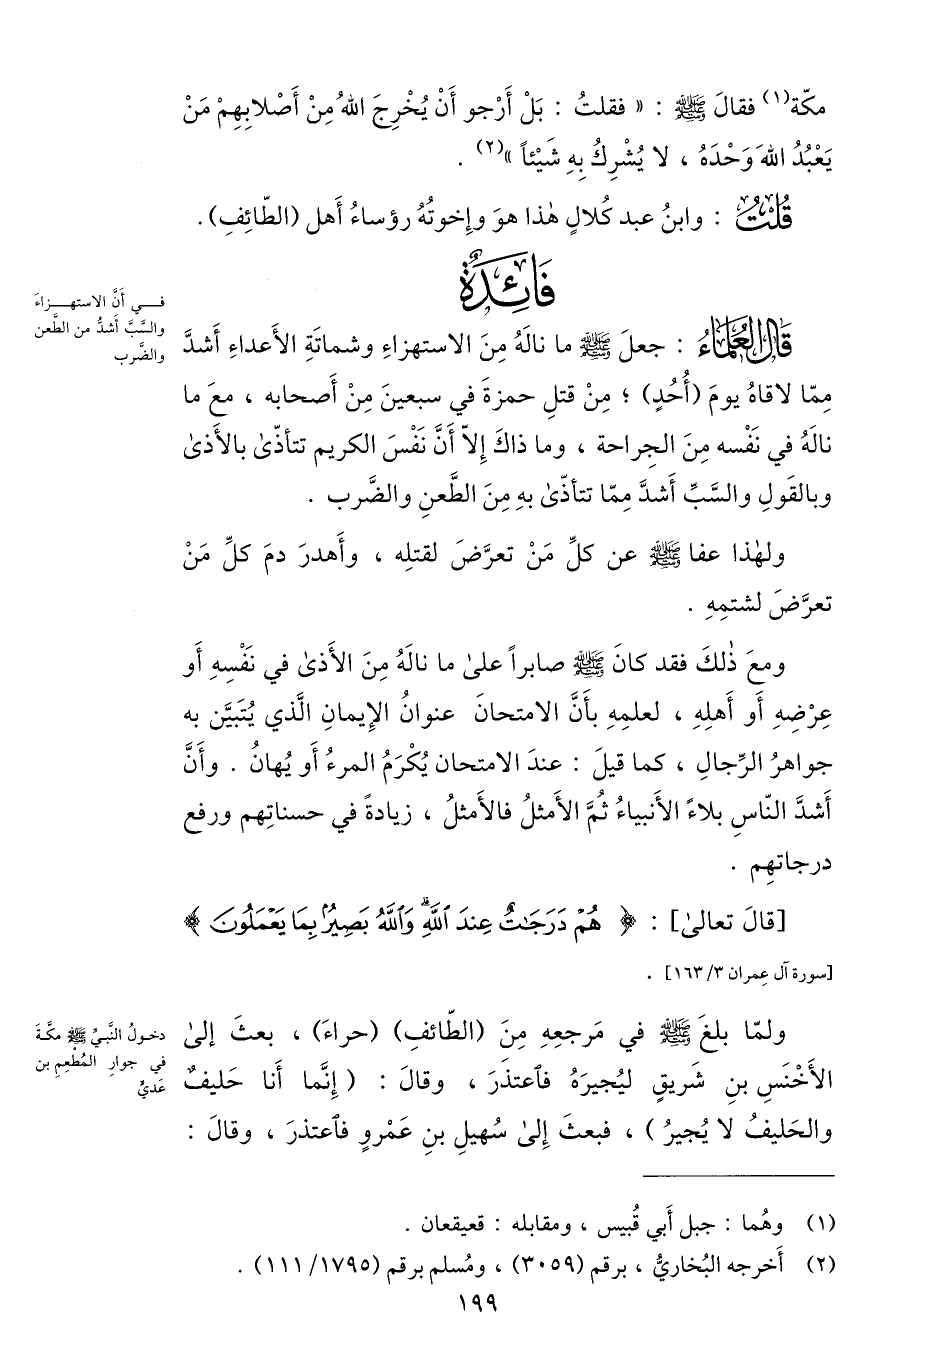 مكّة(١) فقالَ ﷺ : « فقلتُ : بَلْ أَرْجو أَنْ يُخْرِجَ اللهُ مِنْ أَصْلابِهِمْ مَنْ
يَعْبُدُ اللهَ وَحْدَهُ ، لا يُشْرِكُ بِهِ شَيْئاً »(٢) .
قُلْتُ : وابنُ عبد كُلالٍ هٰذا هوَ وإخوتُهُ رؤساءُ أهل (الطّائِفِ).
فَائِدَةٌ
في أَنَّ الاستهزاءَ
والسَّبَّ أشدُّ من الطَّعن
والضَّرب
قَالَ العُلَمَاءُ : جعلَ ﷺ ما نالَهُ مِنَ الاستهزاءِ وشماتَةِ الأعداءِ أشدَّ
مِمّا لاقاهُ يومَ (أُحُدٍ) ؛ مِنْ قتلِ حمزةَ في سبعينَ مِنْ أصحابه ، معَ ما
نالَهُ في نَفْسه مِنَ الجِراحة ، وما ذاكَ إلاّ أَنَّ نَفْسَ الكريم تتأذّىٰ بالأذىٰ
وبالقَولِ والسَّبِّ أشدَّ مِمّا تتأذّىٰ بهِ مِنَ الطَّعنِ والضَّرب .
ولهٰذا عفا ﷺ عن كلِّ مَنْ تعرَّضَ لقتلِه ، وأهدرَ دمَ كلِّ مَنْ
تعرَّضَ لشتمِهِ .
ومعَ ذٰلكَ فقد كانَ ﷺ صابراً علىٰ ما نالَهُ مِنَ الأذىٰ في نَفْسِهِ أو
عِرْضِهِ أو أهلِهِ ، لعلمِهِ بأَنَّ الامتحانَ عنوانُ الإيمانِ الَّذي يُتَبيَّن به
جواهرُ الرِّجالِ ، كما قيلَ : عندَ الامتحان يُكْرَمُ المرءُ أو يُهانُ . وأنَّ
أشدَّ النّاسِ بلاءً الأنبياءُ ثُمَّ الأمثلُ فالأمثلُ ، زيادةً في حسناتِهم ورفع
درجاتِهِم .
[قالَ تعالىٰ] : ﴿ هُمْ دَرَجَٰتٌ عِندَ ٱللَّهِ ۗ وَٱللَّهُ بَصِيرٌۢ بِمَا يَعْمَلُونَ ﴾
[سورة آل عِمران ٣/ ١٦٣] .
دخولُ النَّبيِّ ﷺ مكَّةَ
في جوارِ المُطْعِمِ بن
عَديٍّ
ولمّا بلغَ ﷺ في مَرجعِهِ مِنَ (الطّائفِ) (حراءَ) ، بعثَ إلىٰ
الأَخْنَسِ بنِ شَريقٍ ليُجيرَهُ فٱعتذرَ ، وقالَ : ( إنَّما أنا حَليفٌ
والحَليفُ لا يُجيرُ ) ، فبعثَ إلىٰ سُهيلِ بنِ عَمْرٍو فٱعتذرَ ، وقالَ :
(١) وهُما : جبل أَبي قُبيس ، ومقابله : قعيقعان .
(٢) أخرجه البُخاريُّ ، برقم (٣٠٥٩) ، ومُسلم برقم (١١١/١٧٩٥) .
١٩٩